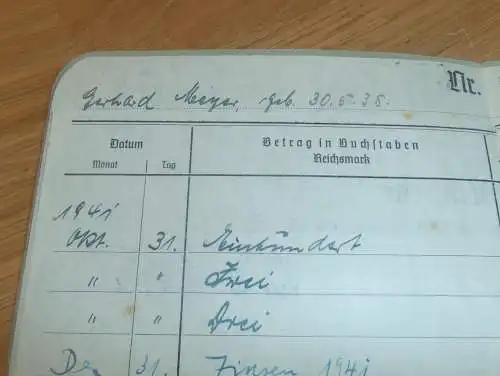 Nr.
Gerhard Meyer, geb. 30.5.38.
Datum Betrag in Buchstaben
Monat Tag Reichsmark
1941
Okt. 31. Einhundert
" " Zwei
" " Drei
De 31. Zinsen 1941